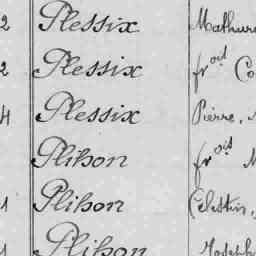 2 Plessix Mathur
2 Plessix frois Co
4 Plessix Pierre,
Plihon frois M
1 Plihon Célestin,
1 Plihon Joseph